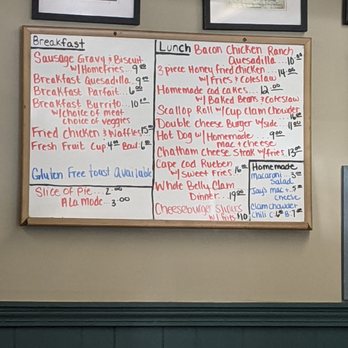 Breakfast
Sausage Gravy & Biscuit
w/ Homefries 9.00
Breakfast Quesadilla 9.00
Breakfast Parfait 6.00
Breakfast Burrito 10
w/ choice of meat
choice of veggies
Fried chicken & Waffles 15
Fresh Fruit Cup 4 Bowl 6
Gluten Free toast Available
Slice of Pie... 2.00
A La mode... 3.00
Lunch
Bacon Chicken Ranch
Quesadilla 10
3 piece Honey fried chicken 14.00
w/ Fries & Coleslaw
Homemade cod cakes... 12.00
w/ Baked Beans & Coleslaw
Scallop Roll w/ Cup clam Chowder
Double cheese Burger w/ side 11
Hot Dog w/ Homemade 9.00
mac & cheese
Chatham Cheese Steak w/ fries 13
Cape Cod Rueben 16
w/ Sweet Fries
Whole Belly Clam
Dinner... 19
Cheeseburger Sliders
w/ 10
Homemade
macaroni 3
Salad
mac &
cheese
Clam chowder
Chili C 6 B 7